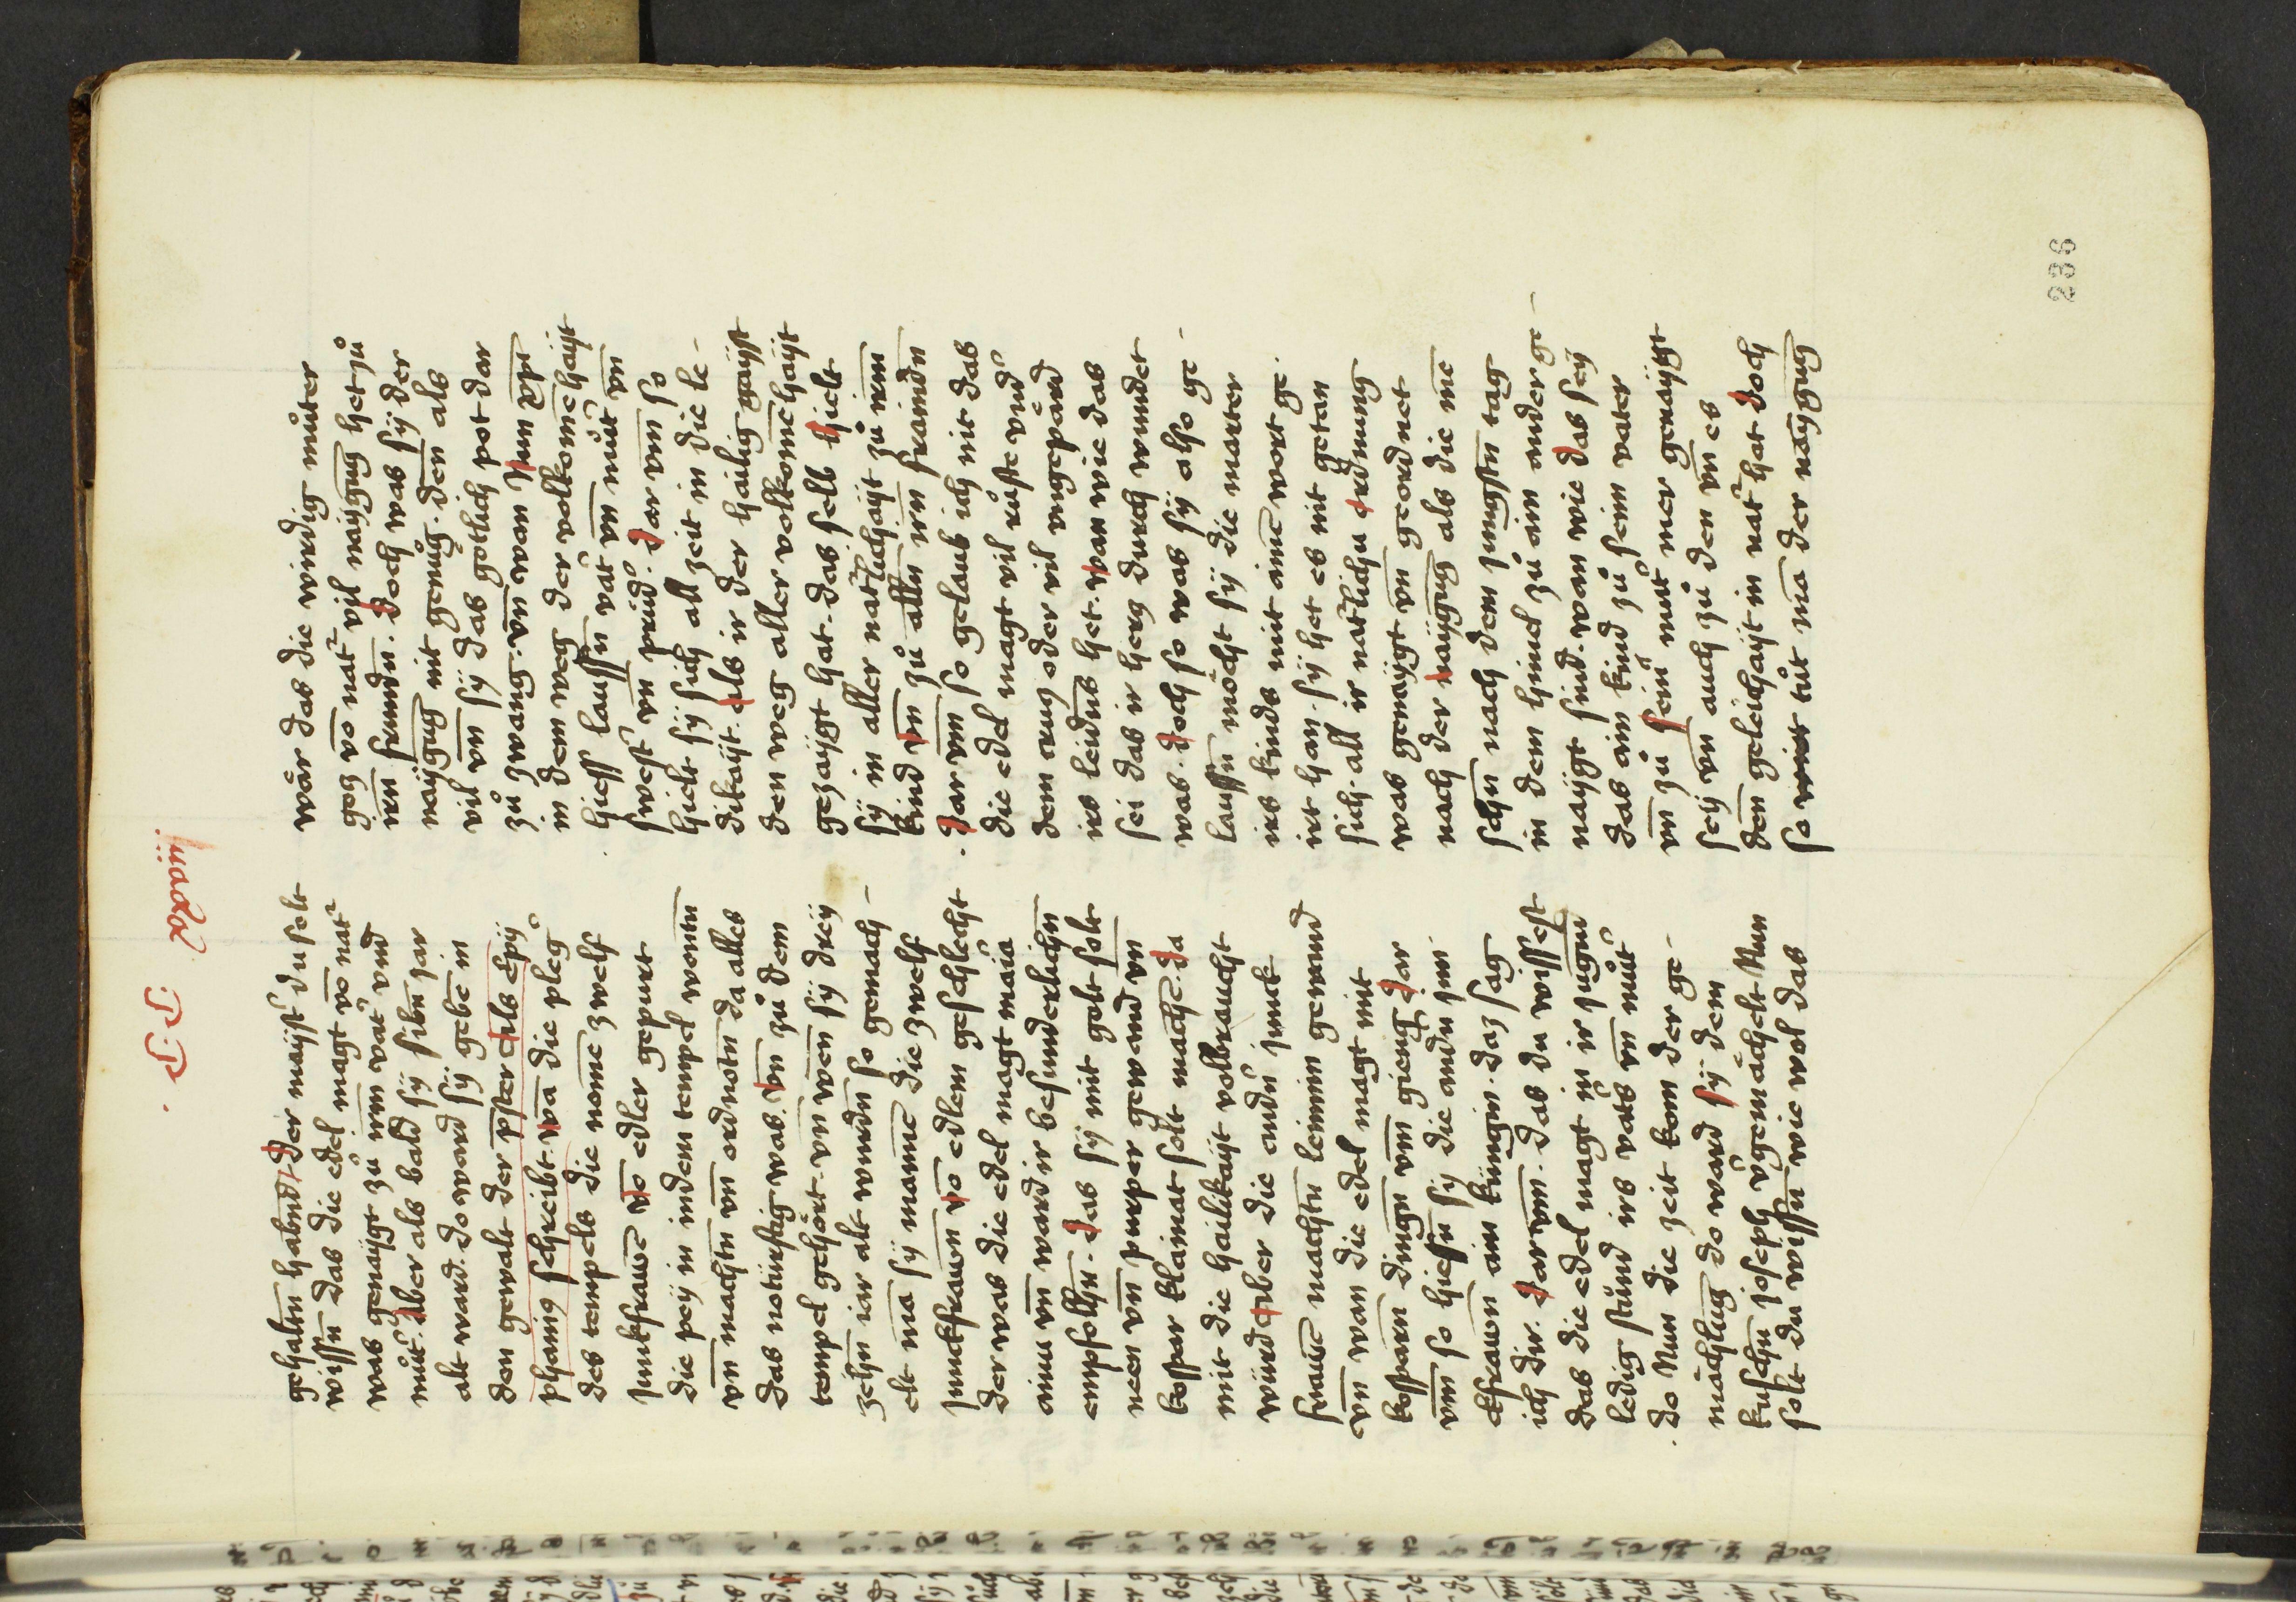 gehaltn̄ habnd / der mayst̾ du solt
wissn̄ das die edel magt vō nat̾
was genaygt zů irm vat̾ vnd
můt̾. aber als bald sy sibn̄ jar
alt ward. do ward sy gebē in
den gewalt der pster Als Epy
phanig schreibt. wā die pleg̾
des tempels die nomē zwelf
junkfrawē vō edler gepurt
die pey in indem tempel wontn̄
vn̄ machtn̄ vn̄ ordnotn̄ da alles
das notürftig was. vn̄ zů dem
tempel gehört. vn̄ wen sy drey
zehn̄ iar alt wurdn̄ so gemach-
elt mā sy mannē die zwelf
junckfrawn vō edlem geschlecht
der was die edel magt maria
ainu vn̄ ward ir besunderlichn̄
empfolhn̄. das sy mit golt solt
neen vn̄ purper gewand vn̄
kospar klainat solt machē. da
mit die hailikayt volbraucht
würd aber die andn̄ junck
frawē machtn̄ leinnin gewand
vn̄ wan die edel magt mit
kosparn dingn̄ vm̄ gieng dar
vm̄ so hiessn̄ sy die andn̄ jun-
ckfrawn ain küngin. daz sag
ich dir. darvm̄. das du wissest
das die edel magt in ir jugnd
ledig stůnd irs vat̾s vn̄ můt̾
. do Nun die zeit kom der ge-
mächlung do ward sy dem
kuschn̄ joseph v̾gemächelt Nun
solt du wissn̄ wie wol das
wär das die wirdig můter
gocz vō nat̾ vil naygung het zů
irn frundn̄. doch was sy der
naygung nit genůg. den als
vil vn̄ sy das götlich pot dar
zů zwang. vn̄ wan Nun xp̄i
in dem weg der volkomēhayt
hiess laussn̄ vat̾ vn̄ můt̾ vn̄
swest̾ vn̄ prud̾. dar vm̄ so
hielt sy sich all zeit in die le-
dikayt. als ir der hailig gayst
den weg aller volkomēhayt
gezaygt hat. das selb hielt
sy in aller natlichayt zů irm
kind vn̄ zů alln̄ irn fraindn̄
. dar vm̄ so gelaub ich nit das
die edel magt vil růste vnd̾
dem crucz oder vil vngepärd
irs leidns het. wan wie das
sei das ir hercz durch wundet
was. doch so was sy also ge-
laussn̄ möcht sy die marter
irs kinds mit aimē wort ge-
irt han. sy het es nit getan
sich. all ir nat̾lichu ordnung
was genaygt vn̄ geordnet
nach der naygung als die mē
schn̄ nach dem jungstn̄ tag
in dem himel zů ain ander ge-
naygt sind. wan wie das sey
das ain kind zů seim vater
vn̄ zů sein̾ můt̾ mer genaygt
sey vn̄ auch zů den vn̄ es
den geleichayt in nat̾ hat doch
so tůt mā der naygung
Das
C C xxxviij
286